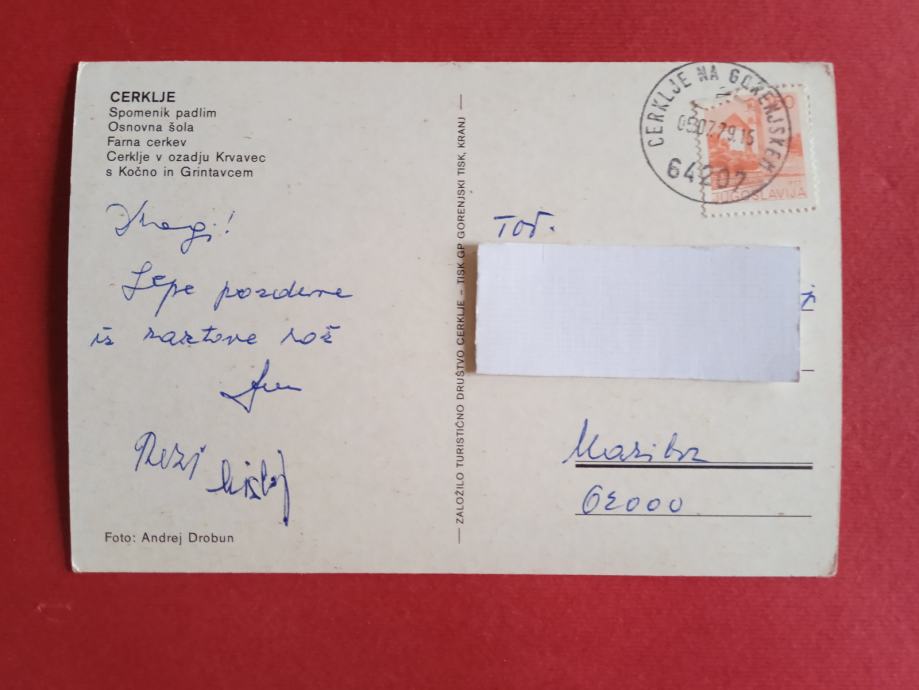 CERKLJE
Spomenik padlim
Osnovna šola
Farna cerkev
Cerklje v ozadju Krvavec
s Kočno in Grintavcem
Dragi!
Lepe pozdrave
iz
Rezi
Foto: Andrej Drobun
ZALOŽILO TURISTIČNO DRUŠTVO CERKLJE – TISK GP GORENJSKI TISK, KRANJ
CERKLJE NA GORENJSKEM
05.07.79.15
64207
JUGOSLAVIJA
Tov.
Maribor
62000